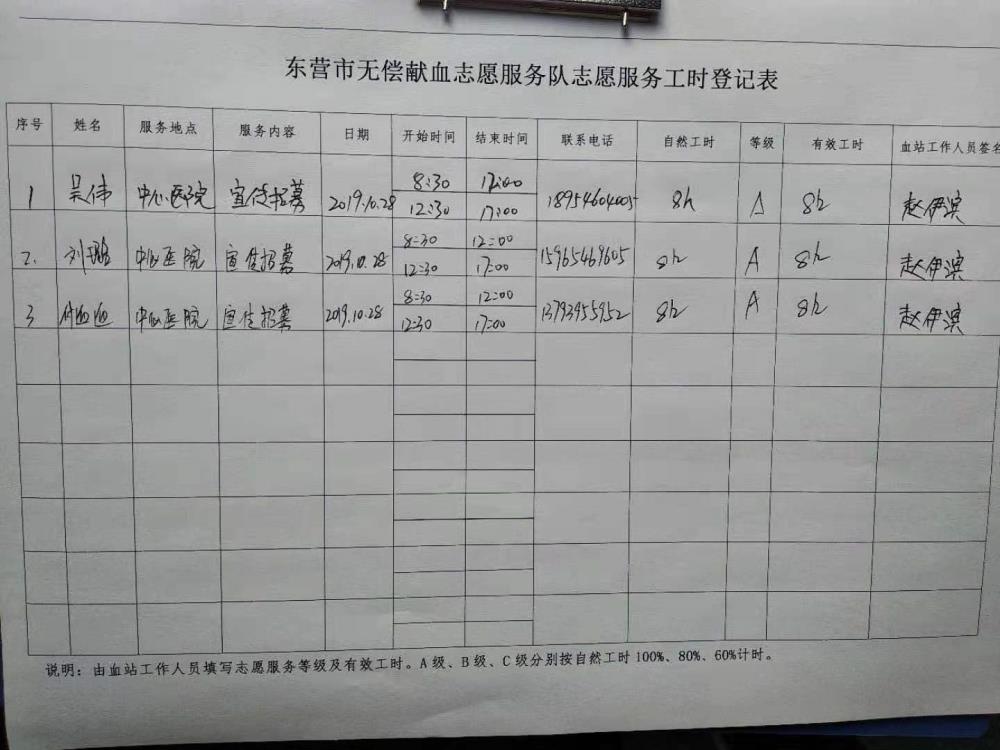 东营市无偿献血志愿服务队志愿服务工时登记表
序号 姓名 服务地点 服务内容 日期 开始时间 结束时间 联系电话 自然工时 等级 有效工时 血站工作人员签名
1 吴伟 中心医院 宣传招募 2019.10.28 8:30 12:00 18954604005 8h A 8h 赵伊滨
12:30 17:00
2. 刘璐 中心医院 宣传招募 2019.10.28 8:30 12:00 15965469605 8h A 8h 赵伊滨
12:30 17:00
3 中心医院 宣传招募 2019.10.28 8:30 12:00 13793955952 8h A 8h 赵伊滨
12:30 17:00
说明：由血站工作人员填写志愿服务等级及有效工时。A级、B级、C级分别按自然工时100%、80%、60%计时。